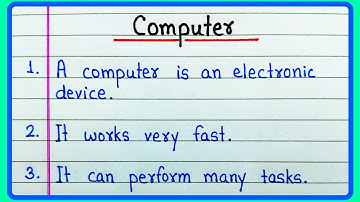 Computer
1. A computer is an electronic
device.
2. It works very fast.
3. It can perform many tasks.